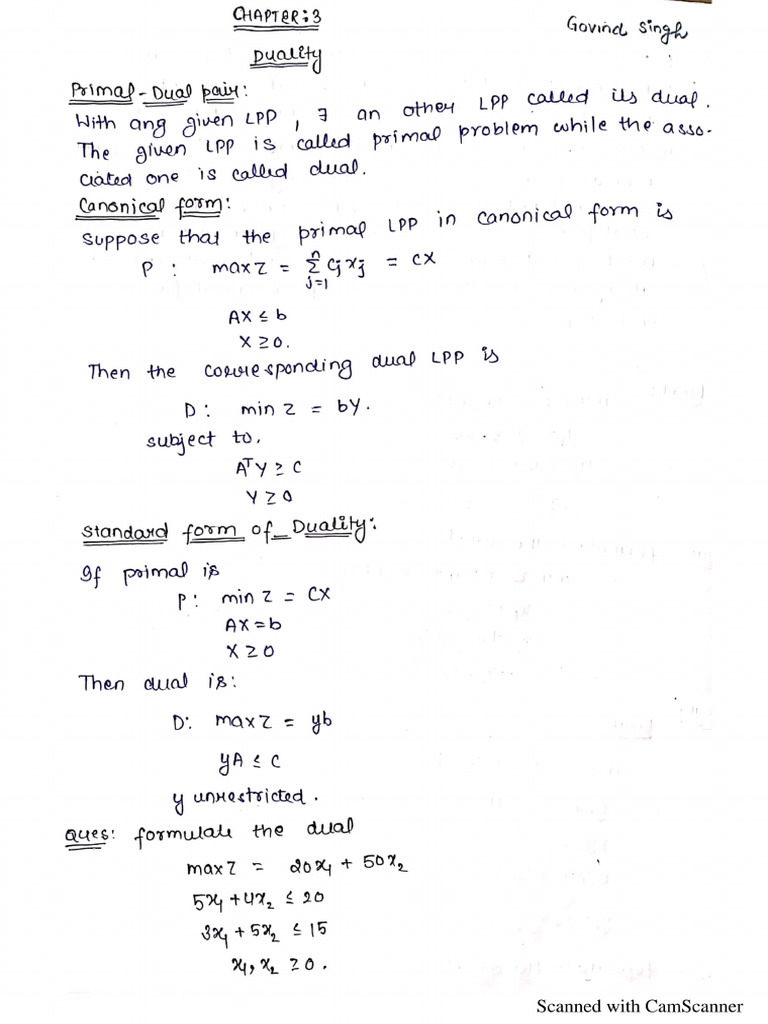 CHAPTER:3
Govind Singh
Duality
Primal-Dual pair:
With ang given LPP, ∃ an other LPP called its dual.
The given LPP is called primal problem while the asso-
ciated one is called dual.
Canonical form:
Suppose that the primal LPP in canonical form is
P : max Z = ∑_{j=1}^{n} C_j x_j = CX
AX ≤ b
X ≥ 0.
Then the corresponding dual LPP is
D: min Z = bY.
subject to,
A^T Y ≥ C
Y ≥ 0
Standard form of Duality:
If primal is
P: min Z = CX
AX = b
X ≥ 0
Then dual is:
D: max Z = yb
yA ≤ C
y unrestricted.
Ques: formulate the dual
max Z = 20x₁ + 50x₂
5x₁ + 4x₂ ≤ 20
3x₁ + 5x₂ ≤ 15
x₁, x₂ ≥ 0.
Scanned with CamScanner